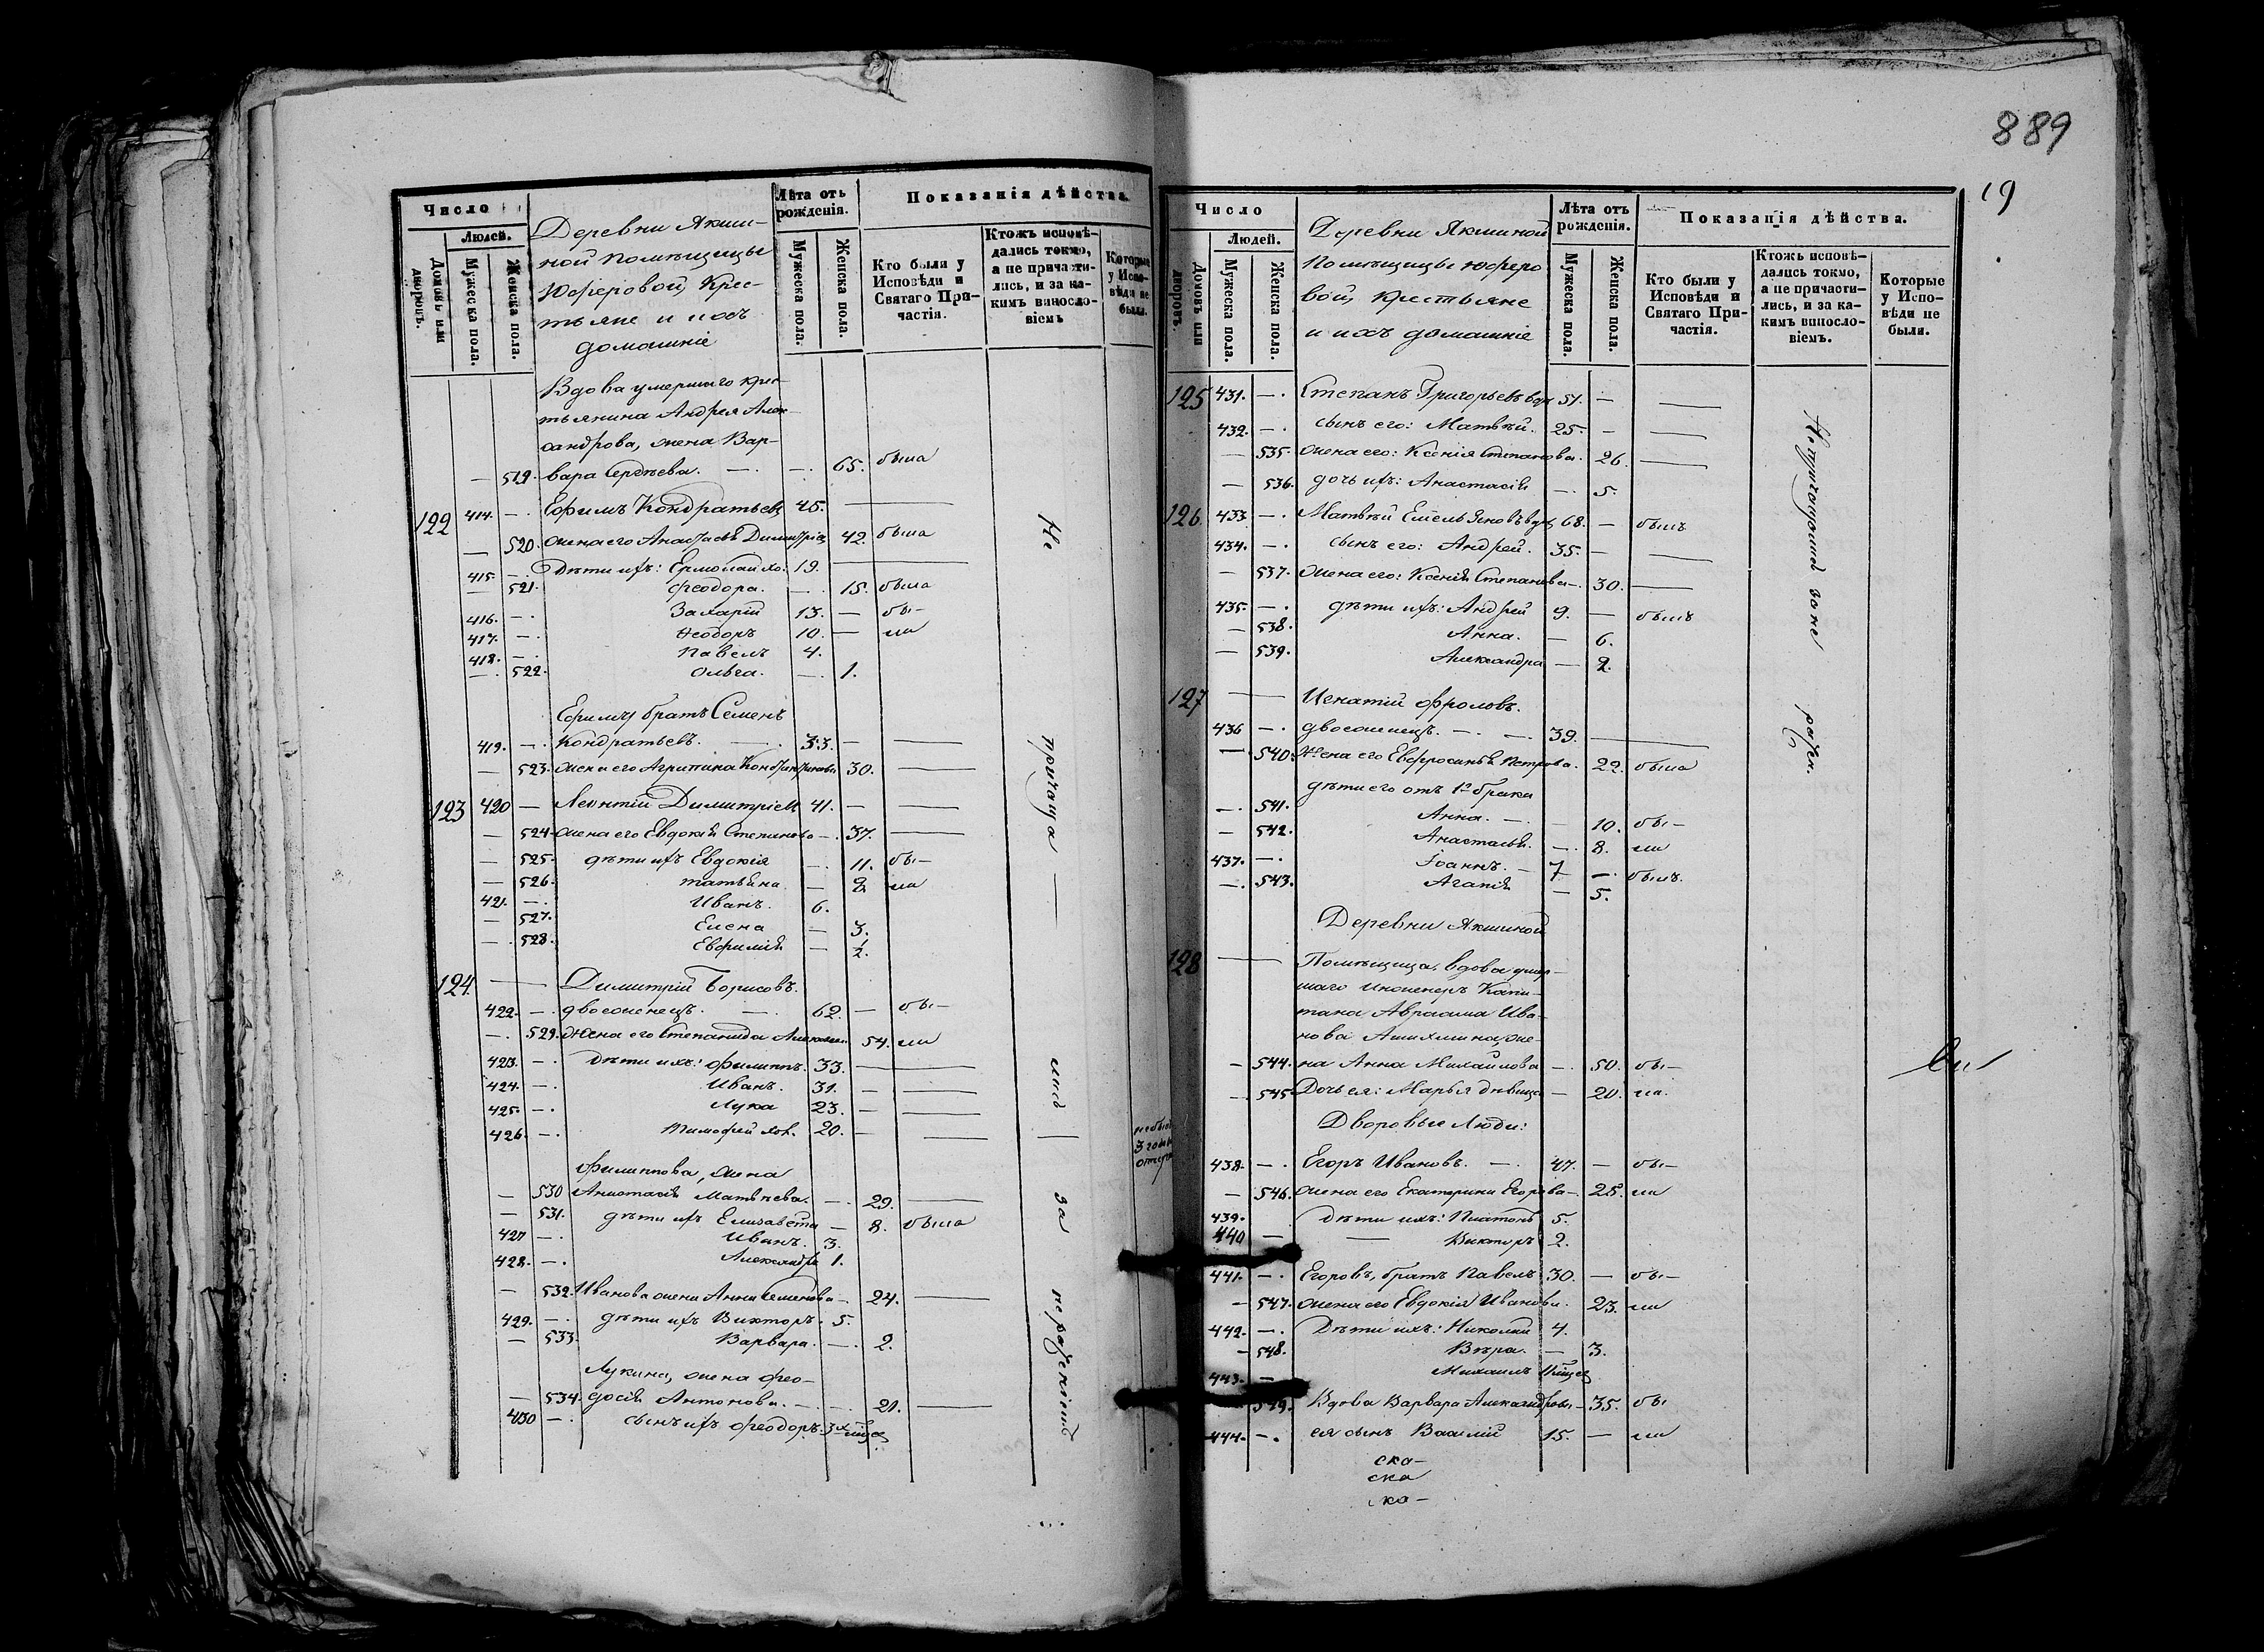 Число
Людей.
Домовъ или дворовъ.
Мужеска пола.
Женска пола.
Деревни Якши-
ной помѣщицы
Юферовой, Крес-
тьяне и ихъ
домашніе
Лѣта отъ рожденія.
Мужеска пола.
Женска пола.
Показанія дѣйства.
Кто были у Исповѣди и Святаго Причастія.
Ктожъ исповѣ-
дались токмо,
а не причасти-
лись, и за ка-
кимъ виносло-
віемъ
Которые
у Испо-
вѣди не
были.
Вдова умершаго крес-
тьянина Андрея Алек-
сандрова, жена Вар-
— 519. вара Сергѣева. — . — . 65. была
122 414. — . Ефимъ Кондратьевъ 45. —
— 520. жена его Анастасія Димитріева 42. была
415. — . Дѣти ихъ: Ермолай хо. 19. —
— 521. Феодора. — . 15. была
416. — . Захарій 13. — бы-
417. — . Феодоръ 10. — ли
418. — . Павелъ 4.
— . 522. Ольга. — . 1.
Ефиму братъ Семенъ
419. — . Кондратьевъ. — . 33. — —
— 523. жена его Агрипина 30. —
123 420 — Леонтій Димитріевъ 41. — —
— 524. жена его Евдокія Степанова — . 37. —
— 525. дѣти ихъ Евдокія — . 11. бы-
— 526. татьяна. — 9. ли
421. — . Иванъ. 6.
— 527. Елена — 3.
— . 528. Евфимія — 1/2.
124. — Димитрій Борисовъ.
422. — . двоеженецъ. — . 62. — бы-
— . 529. Жена его Степанида 54. ли
423. — . Дѣти ихъ: Филиппъ. 33. — —
424. — . Иванъ. 31. — —
425. — . Лука 23. — —
426. — . Тимофей хол. 20. — —
Филиппова, жена
— 530 Анастасія Матвѣева. — . 29. —
— 531. дѣти ихъ Елизавета — 8. была
427 — . Иванъ. 3.
428. — . Александръ 1.
— 532. Иванова жена Анна Семенова — . 24. —
429. — . дѣти ихъ Викторъ. 5.
— 533. Варвара. — . 2.
Лукина, жена Фео-
— 534. досія Антонова. — . — . 21. —
430 — . сынъ ихъ Феодоръ.
Не причащались за нерадѣніемъ
889
19
Число
Людей.
Домовъ или дворовъ.
Мужеска пола.
Женска пола.
Деревни Якшиной
Помѣщицы Юферо
вой, крестьяне
и ихъ домашніе
Лѣта отъ рожденія.
Мужеска пола.
Женска пола.
Показанія дѣйства.
Кто были у Исповѣди и Святаго Причастія.
Ктожъ исповѣ-
дались токмо,
а не причасти-
лись, и за ка-
кимъ виносло-
віемъ.
Которые
у Испо-
вѣди не
были.
125 431. — . Степанъ Григорьевъ вдов 51. — —
432. — . сынъ его: Матвѣй. 25. — —
— 535. жена его: Ксенія Степанова. 26. —
— 536. дочь ихъ: Анастасія — . 5.
126. 433. — . Матвѣй Емельяновъ вдов 68. — былъ
434. — . сынъ его: Андрей. 35. — —
— 537. жена его: Ксенія Степанова — . 30. —
435. — . дѣти ихъ: Андрей 9. — былъ
— 538. Анна. — 6.
— 539. Александра — 2.
127 — Игнатій Фроловъ.
436 — . двоеженецъ. — . — . 39. —
— 540. Жена его Евфросинья Петрова. 22. была
дѣти его отъ 1го брака
— . 541. Анна. — . — 10. бы-
— 542. Анастасія. — . 8. ли
437. — . Іоаннъ. — 7 — . былъ.
— . 543. Агапія — 5.
Деревни Якшиной
128 — Помѣщица, вдова умер-
шаго Инженеръ Капи-
тана Авраама Ива-
нова же-
— 544. на Анна Михайлова — . 50. бы-
— 545. Дочь ея: Марья дѣвица — 20. ли.
Дворовые Люди:
438. — . Егоръ Ивановъ. — . 47. — бы-
— 546. жена его Екатерина Егорова — . 25. ли
439. Дѣти ихъ: Платонъ 5.
440 — — Викторъ 2.
441. — . Егоровъ, братъ Павелъ 30. — бы-
— 547. жена его Евдокія Иванова. 23. ли
442. — . Дѣти ихъ: Николай 4.
— 548. Вѣра. — 3.
443. — Михаилъ
549. Вдова Варвара Александрова — 35. бы
444. — . ея сынъ Василій 15. — ли
Не причащались за не радѣн.
ска-
ска
ска-